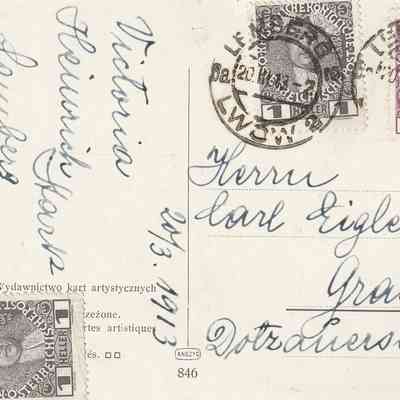 Victoria
Heinrich Stark
Lemberg
20/3. 1913
LEMBERG
LWÓW
KAISERLICHE KÖNIGLICHE
ÖSTERREICHISCHE
1 HELLER 1
Herrn
Carl Eigle
Gra
Dotzauers
Wydawnictwo kart artystycznych
rzeżone.
rtes artistique
és.
1 HELLER
ANCZYC
846